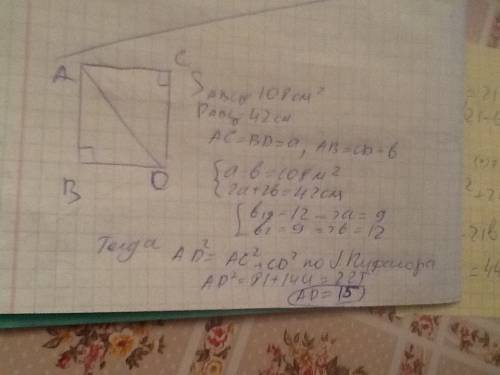 A
C
B
D
S ABCD = 108 см²
P ABCD = 42 см
AC=BD=a, AB=CD=b
a·b=108 м²
2a+2b=42 см
=12
=9
=9
=12
Тогда AD²= AC²+CD² по т. Пифагора
AD²=81+144=225
AD=15